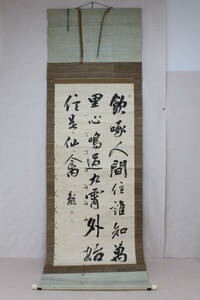 飲啄人間住誰知萬
里心鳴過九霄外始
信是仙禽 龍